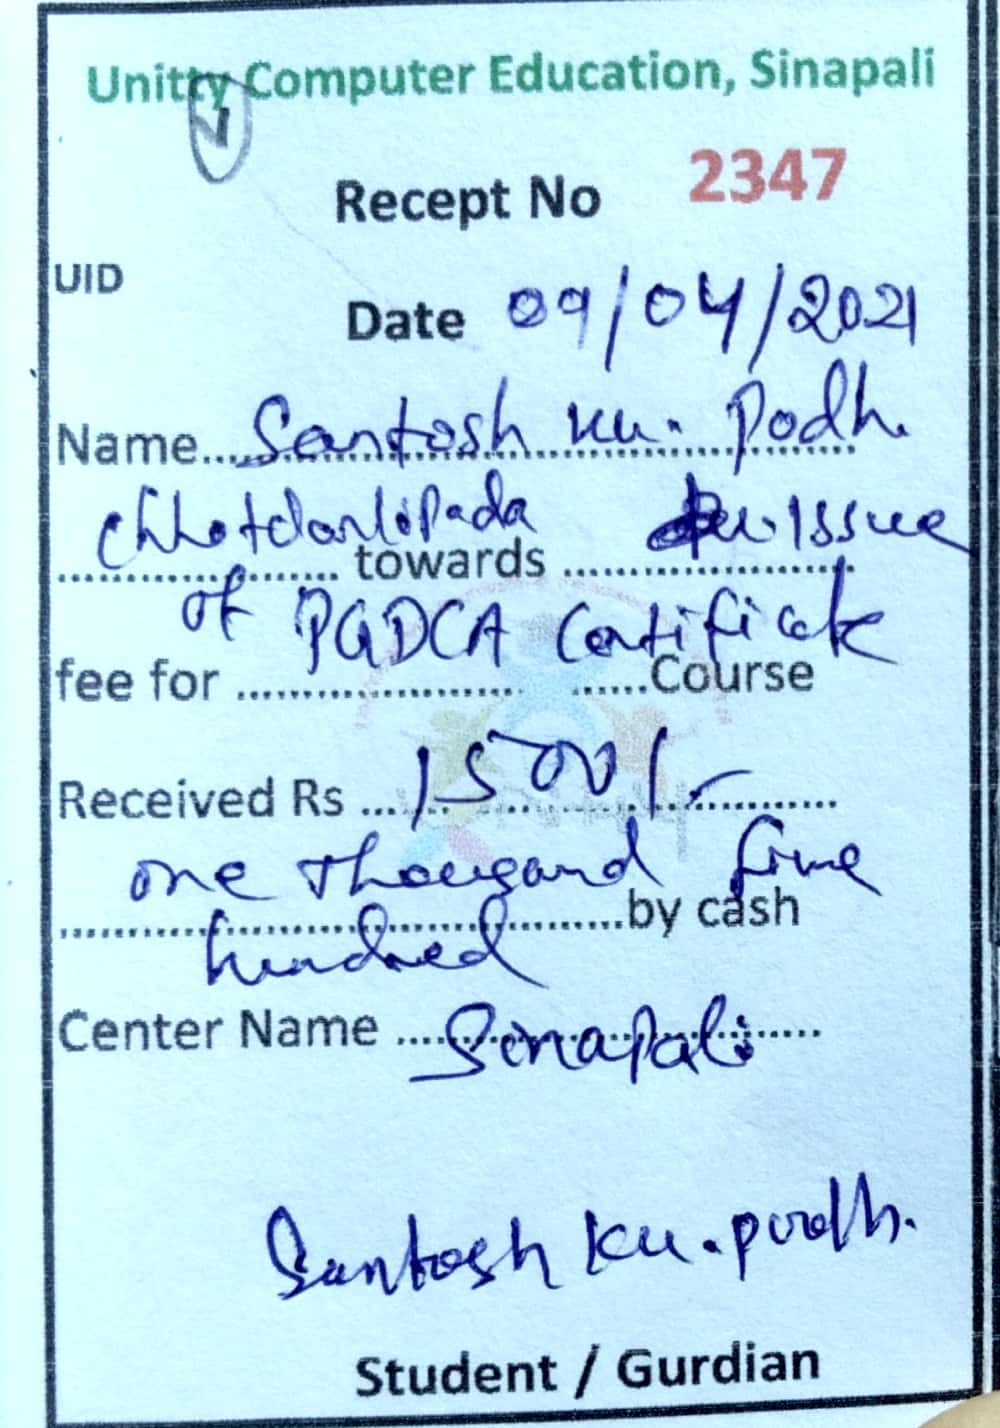 Unitty Computer Education, Sinapali
1
Recept No 2347
UID
Date 09/04/2021
Name.....Santosh Ku. Podh.
............ towards ............ Issue
of PGDCA Certificate
fee for ............ ......Course
Received Rs ...1500/-............
one thousand five
............by cash
hundred
Center Name ....Sinapali......
Santosh Ku. podh.
Student / Gurdian